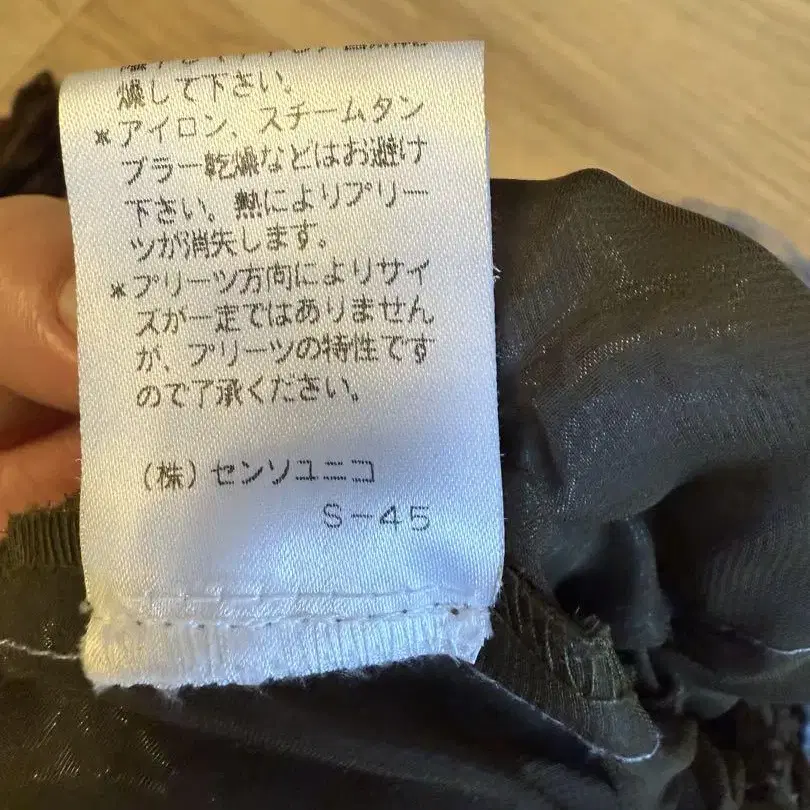 燥して下さい。
*アイロン、スチームタン
ブラー乾燥などはお避け
下さい。熱によりプリー
ツが消失します。
*プリーツ方向によりサイ
ズが一定ではありません
が、プリーツの特性です
ので了承ください。
(株)センソユニコ
S-45